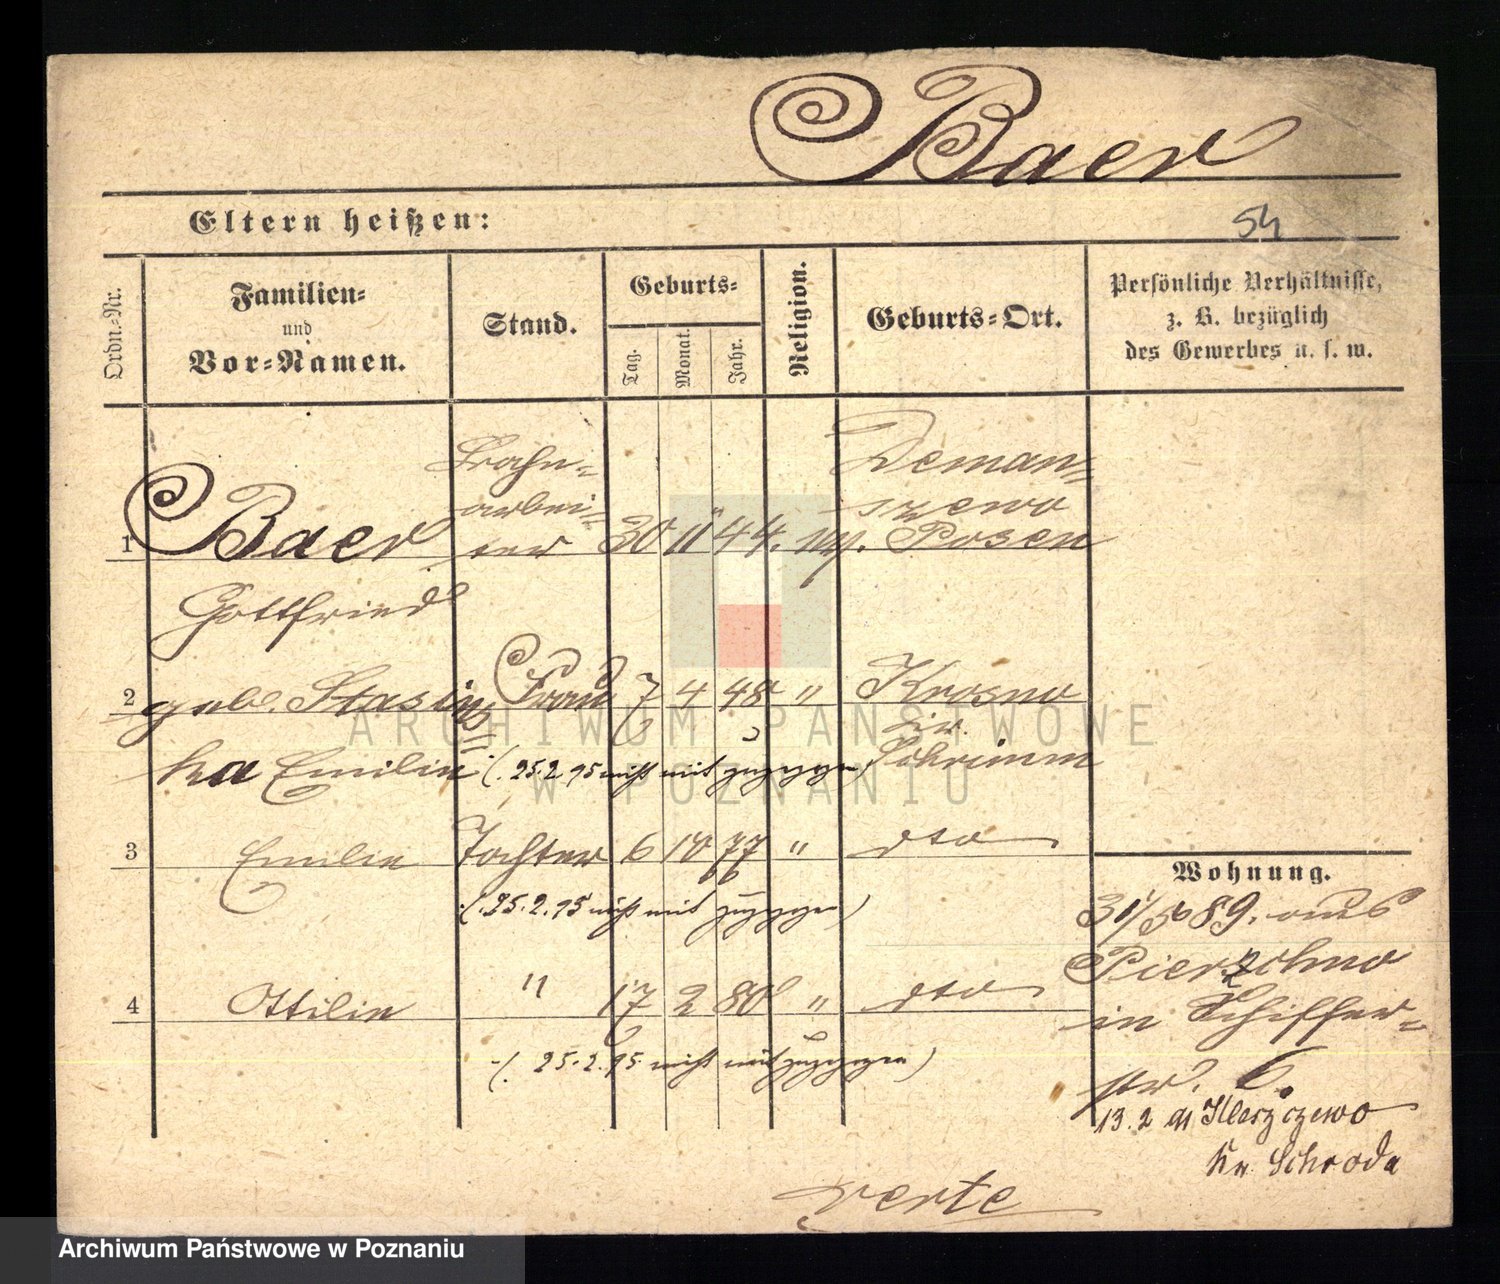 Baer
Eltern heißen:
54
Ordn.-Nr.
Familien-
und
Vor-Namen.
Stand.
Geburts-
Tag.
Monat.
Jahr.
Religion.
Geburts-Ort.
Persönliche Verhältnisse,
z. B. bezüglich
des Gewerbes u. s. w.
1 Baer
Gottfried
arbei-
ter
30 11 44.
Deman-
szewo
Posen
2 geb. Stasin
ka Emilie
Frau 7 4 48 "
Krosno
Kr.
Schrimm
(. 25.2.95 nicht mit zugezogen)
3 Emilie Tochter 6 10 77 " dto
(. 25.2.95 nicht mit zugezogen)
4 Ottilie " 17 2 80 " dto
(. 25.2.95. nicht mit zugezogen)
Wohnung.
89. aus
in Schiffer-
str. 6.
13.2
Kr. Schroda
verte
ARCHIWUM PAŃSTWOWE
W POZNANIU
Archiwum Państwowe w Poznaniu